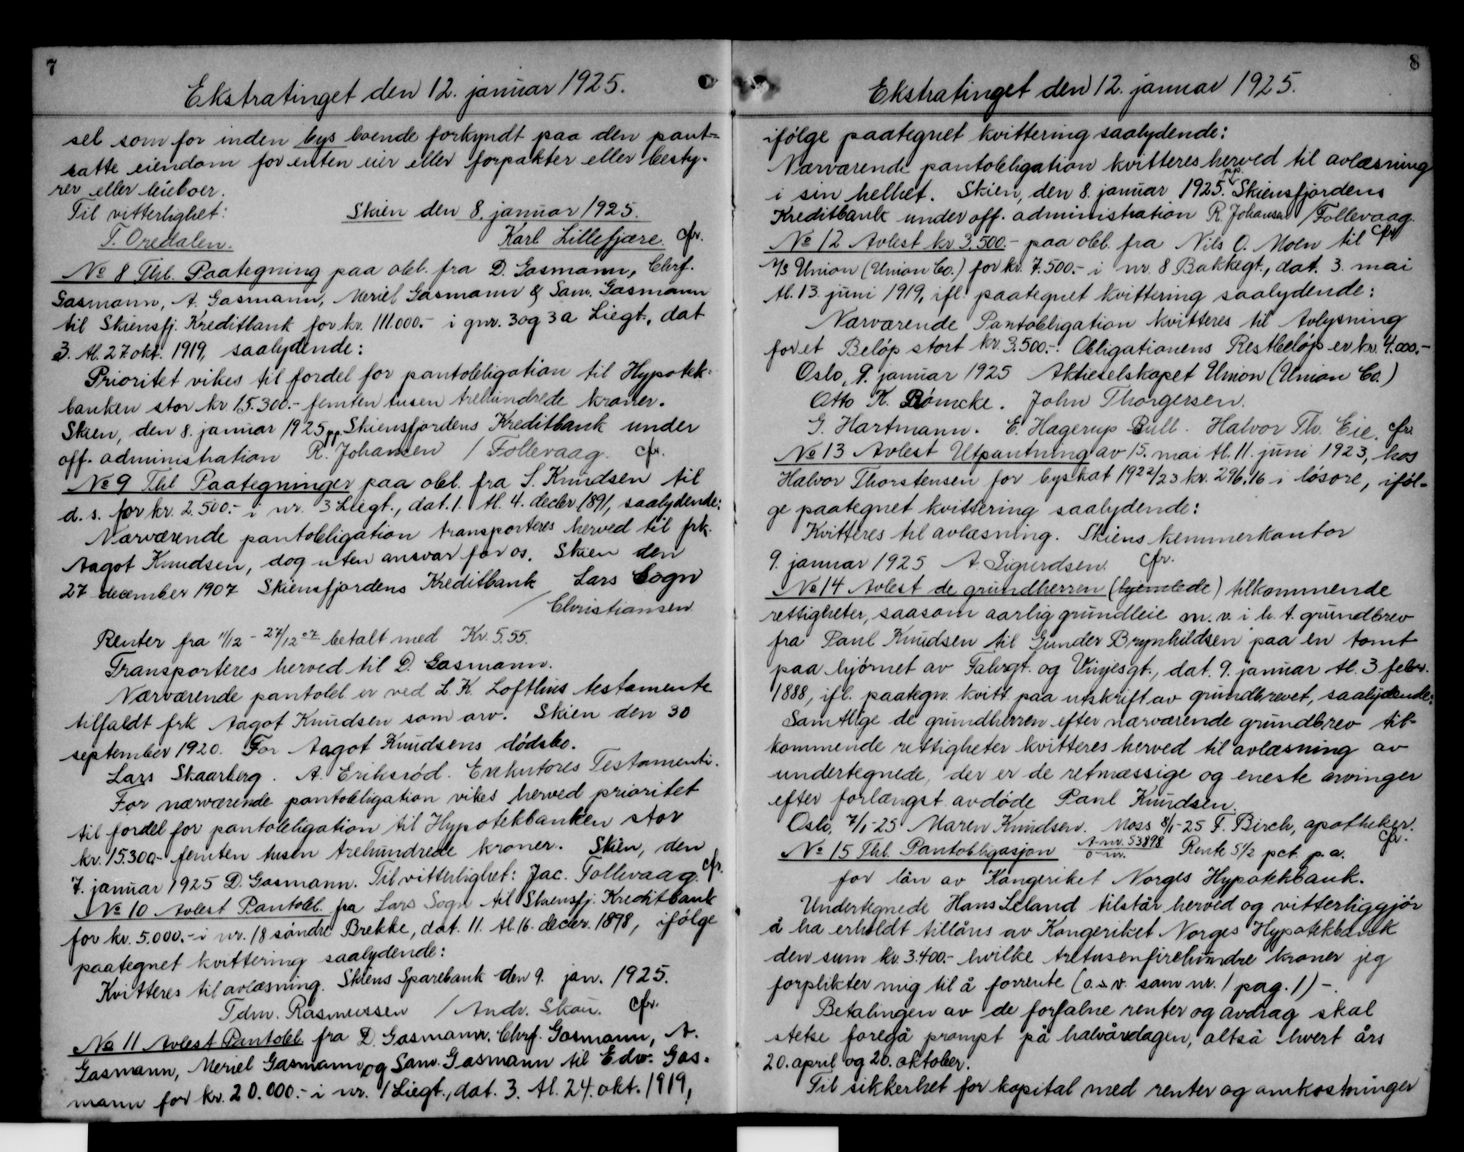 7
Ekstratinget den 12. januar 1925.
sel som for inden bys boende forkyndt paa den pant-
satte eiendom for enten eier eller forpakter eller besty-
rer eller leieboer.
Til vitterlighet: Skien den 8. januar 1925.
T. Oredalen. Karl Lillefjære. cfr.
No 8 Thl. Paategning paa obl. fra D. Gasmann, Chrf.
Gasmann, A. Gasmann, Meriel Gasmann & Sam. Gasmann
til Skiensfj. Kreditbank for kr. 111.000.- i gnr. 3 og 3a Liegt., dat
3. tl. 27 okt. 1919, saalydende:
Prioritet vikes til fordel for pantobligation til Hypotek-
banken stor kr 15.300.- femten tusen trehundrede kroner.
Skien, den 8. januar 1925 pp Skiensfjordens Kreditbank under
off. administration R. Johansen / Follevaag. cfr.
No 9 Thl. Paategninger paa obl. fra S. Knudsen til
d. s. for kr. 2.500.- i nr. 3 Liegt., dat. 1. tl. 4. decbr 1891, saalydende:
Nærværende pantobligation transporteres herved til frk.
Aagot Knudsen, dog uten ansvar for os. Skien den
27 december 1907 Skiensfjordens Kreditbank Lars Sogn
/ Christiansen
Renter fra 11/12 - 27/12 07 betalt med Kr. 5.55.
Transporteres herved til D. Gasmann.
Nærværende pantobl er ved L. K. Lofthus testamente
tilfaldt frk Aagot Knudsen som arv. Skien den 30
september 1920. For Aagot Knudsens dödsbo.
Lars Skaarberg. A. Eriksröd. Exekutores Testamenti.
For nærværende pantobligation vikes herved prioritet
til fordel for pantobligation til Hypotekbanken stor
kr. 15.300- femten tusen trehundrede kroner. Skien, den
7. januar 1925 D. Gasmann. Til vitterlighet: Jac. Follevaag. cfr.
No 10 Avlest Pantobl. fra Lars Sogn til Skiensfj. Kreditbank
for kr. 5.000.- i nr. 18 söndre Brekke, dat. 11. tl. 16. decbr. 1898, ifölge
paategnet kvittering saalydende:
Kvitteres til avlæsning. Skiens Sparebank den 9. jan. 1925.
Edm. Rasmussen / Andr. Skau. cfr.
No 11 Avlest Pantobl. fra D. Gasmann, Chrf. Gasmann, A.
Gasmann, Meriel Gasmann og Sam. Gasmann til Edv. Gas-
mann for kr. 20.000.- i nr. 1 Liegt., dat. 3. tl. 24. okt. 1919,
8
Ekstratinget den 12. januar 1925.
ifölge paategnet kvittering saalydende:
Nærværende pantobligation kvitteres herved til avlæsning
i sin helhet. Skien, den 8. januar 1925. pp. Skiensfjordens
Kreditbank under off. administration R. Johansen / Follevaag. cfr
No 12 Avlest kr 3.500.- paa obl. fra Nils O. Moen til
A/S Union (Union Co.) for kr. 7.500.- i nr. 8 Bakkegt., dat. 3. mai
tl. 13 juni 1919, ifl. paategnet kvittering saalydende:
Nærværende Pantobligation kvitteres til Avlysning
for et Belöp stort kr. 3.500.-. Obligationens Restbelöp er kr. 4.000.-
Oslo, 9. januar 1925 Aktieselskapet Union (Union Co.)
Otto K. Römcke. John Thorgersen.
G. Hartmann. E. Hagerup Bull. Halvor Th. Eie. cfr.
No 13 Avlest Utpantning av 15. mai tl. 11. juni 1923, hos
Halvor Thorstensen for byskat 1922/23 kr. 296,46 i lösöre, iföl-
ge paategnet kvittering saalydende:
Kvitteres til avlæsning. Skiens kemnerkontor
9. januar 1925 A Sigurdsen. cfr.
No 14 Avlest de grundherren (hjemlede) tilkommende
rettigheter, saasom aarlig grundleie m. v. i h. t. grundbrev
fra Paul Knudsen til Gunder Brynhildsen paa en tomt
paa hjörnet av Fabrgt. og Vinjesgt., dat. 9. januar tl. 3 febr.
1888, ifl. paategn. kvitt paa utskrift av grundbrevet, saalydende:
Samtlige de grundherren efter nærværende grundbrev til-
kommende rettigheter kvitteres herved til avlæsning av
undertegnede, der er de retmæssige og eneste arvinger
efter forlængst avdöde Paul Knudsen.
Oslo, 7/1-25 Maren Knudsen. Moss 8/1-25 F. Birch, apotheker. cfr.
No 15 Thl. Pantobligasjon A-nr. 53898 Rente 5 1/2 pct. p.a.
for lån av Kongeriket Norges Hypotekbank.
Undertegnede Hans Leland tilstår herved og vitterliggjör
å ha erholdt tillåns av Kongeriket Norges Hypotekbank
den sum kr. 3.400.- hvilke tretusenfirehundre kroner jeg
forplikter mig til å forrente (o.s.v. som nr. 1 pag. 1) -.
Betalingen av de forfalne renter og avdrag skal
stetse foregå prompt på halvårsdagen, altså hvert års
20. april og 20. oktober.
Til sikkerhet for kapital med renter og omkostninger